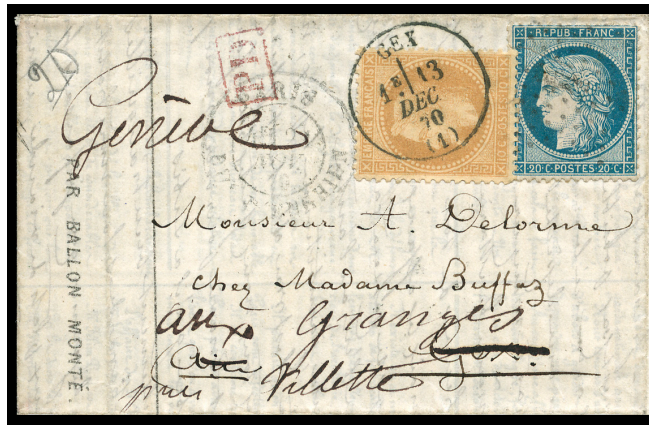 PD
GEX
1E 13
DEC
70
(1)
EMPIRE FRANÇAIS
REPUB·FRANC·
20·C·POSTES·20·C·
PARIS
Genève
PAR BALLON MONTÉ.
Monsieur A. Delorme
chez Madame Buffaz
aux Granges
Gex.
(Ain)
près Villette